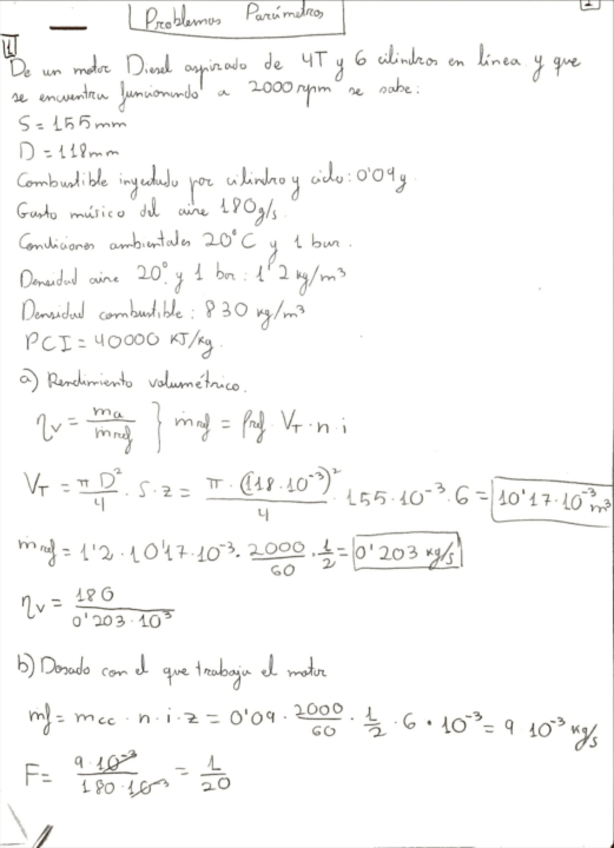 Problemas Parámetros
1
1
De un motor Diesel aspirado de 4T y 6 cilindros en línea y que
se encuentra funcionando a 2000 rpm se sabe:
S = 155 mm
D = 118 mm
Combustible inyectado por cilindro y ciclo: 0'09 g.
Gasto másico del aire 180 g/s.
Condiciones ambientales 20°C y 1 bar.
Densidad aire 20° y 1 bar: 1'2 kg/m³
Densidad combustible: 830 kg/m³
PCI = 40000 KJ/kg.
a) Rendimiento volumétrico.
ηv = ma / ṁref } ṁref = ρref · VT · n · i
VT = π D² / 4 · S · z = π · (118·10⁻³)² / 4 · 155·10⁻³ · 6 = 10'17·10⁻³ m³
ṁref = 1'2 · 10'17·10⁻³ · 2000/60 · 1/2 = 0'203 kg/s
ηv = 180 / 0'203·10³
b) Dosado con el que trabaja el motor
ṁf = mcc · n · i · z = 0'09 · 2000/60 · 1/2 · 6 · 10⁻³ = 9 10⁻³ kg/s
F = 9·10⁻³ / 180·10⁻³ = 1/20